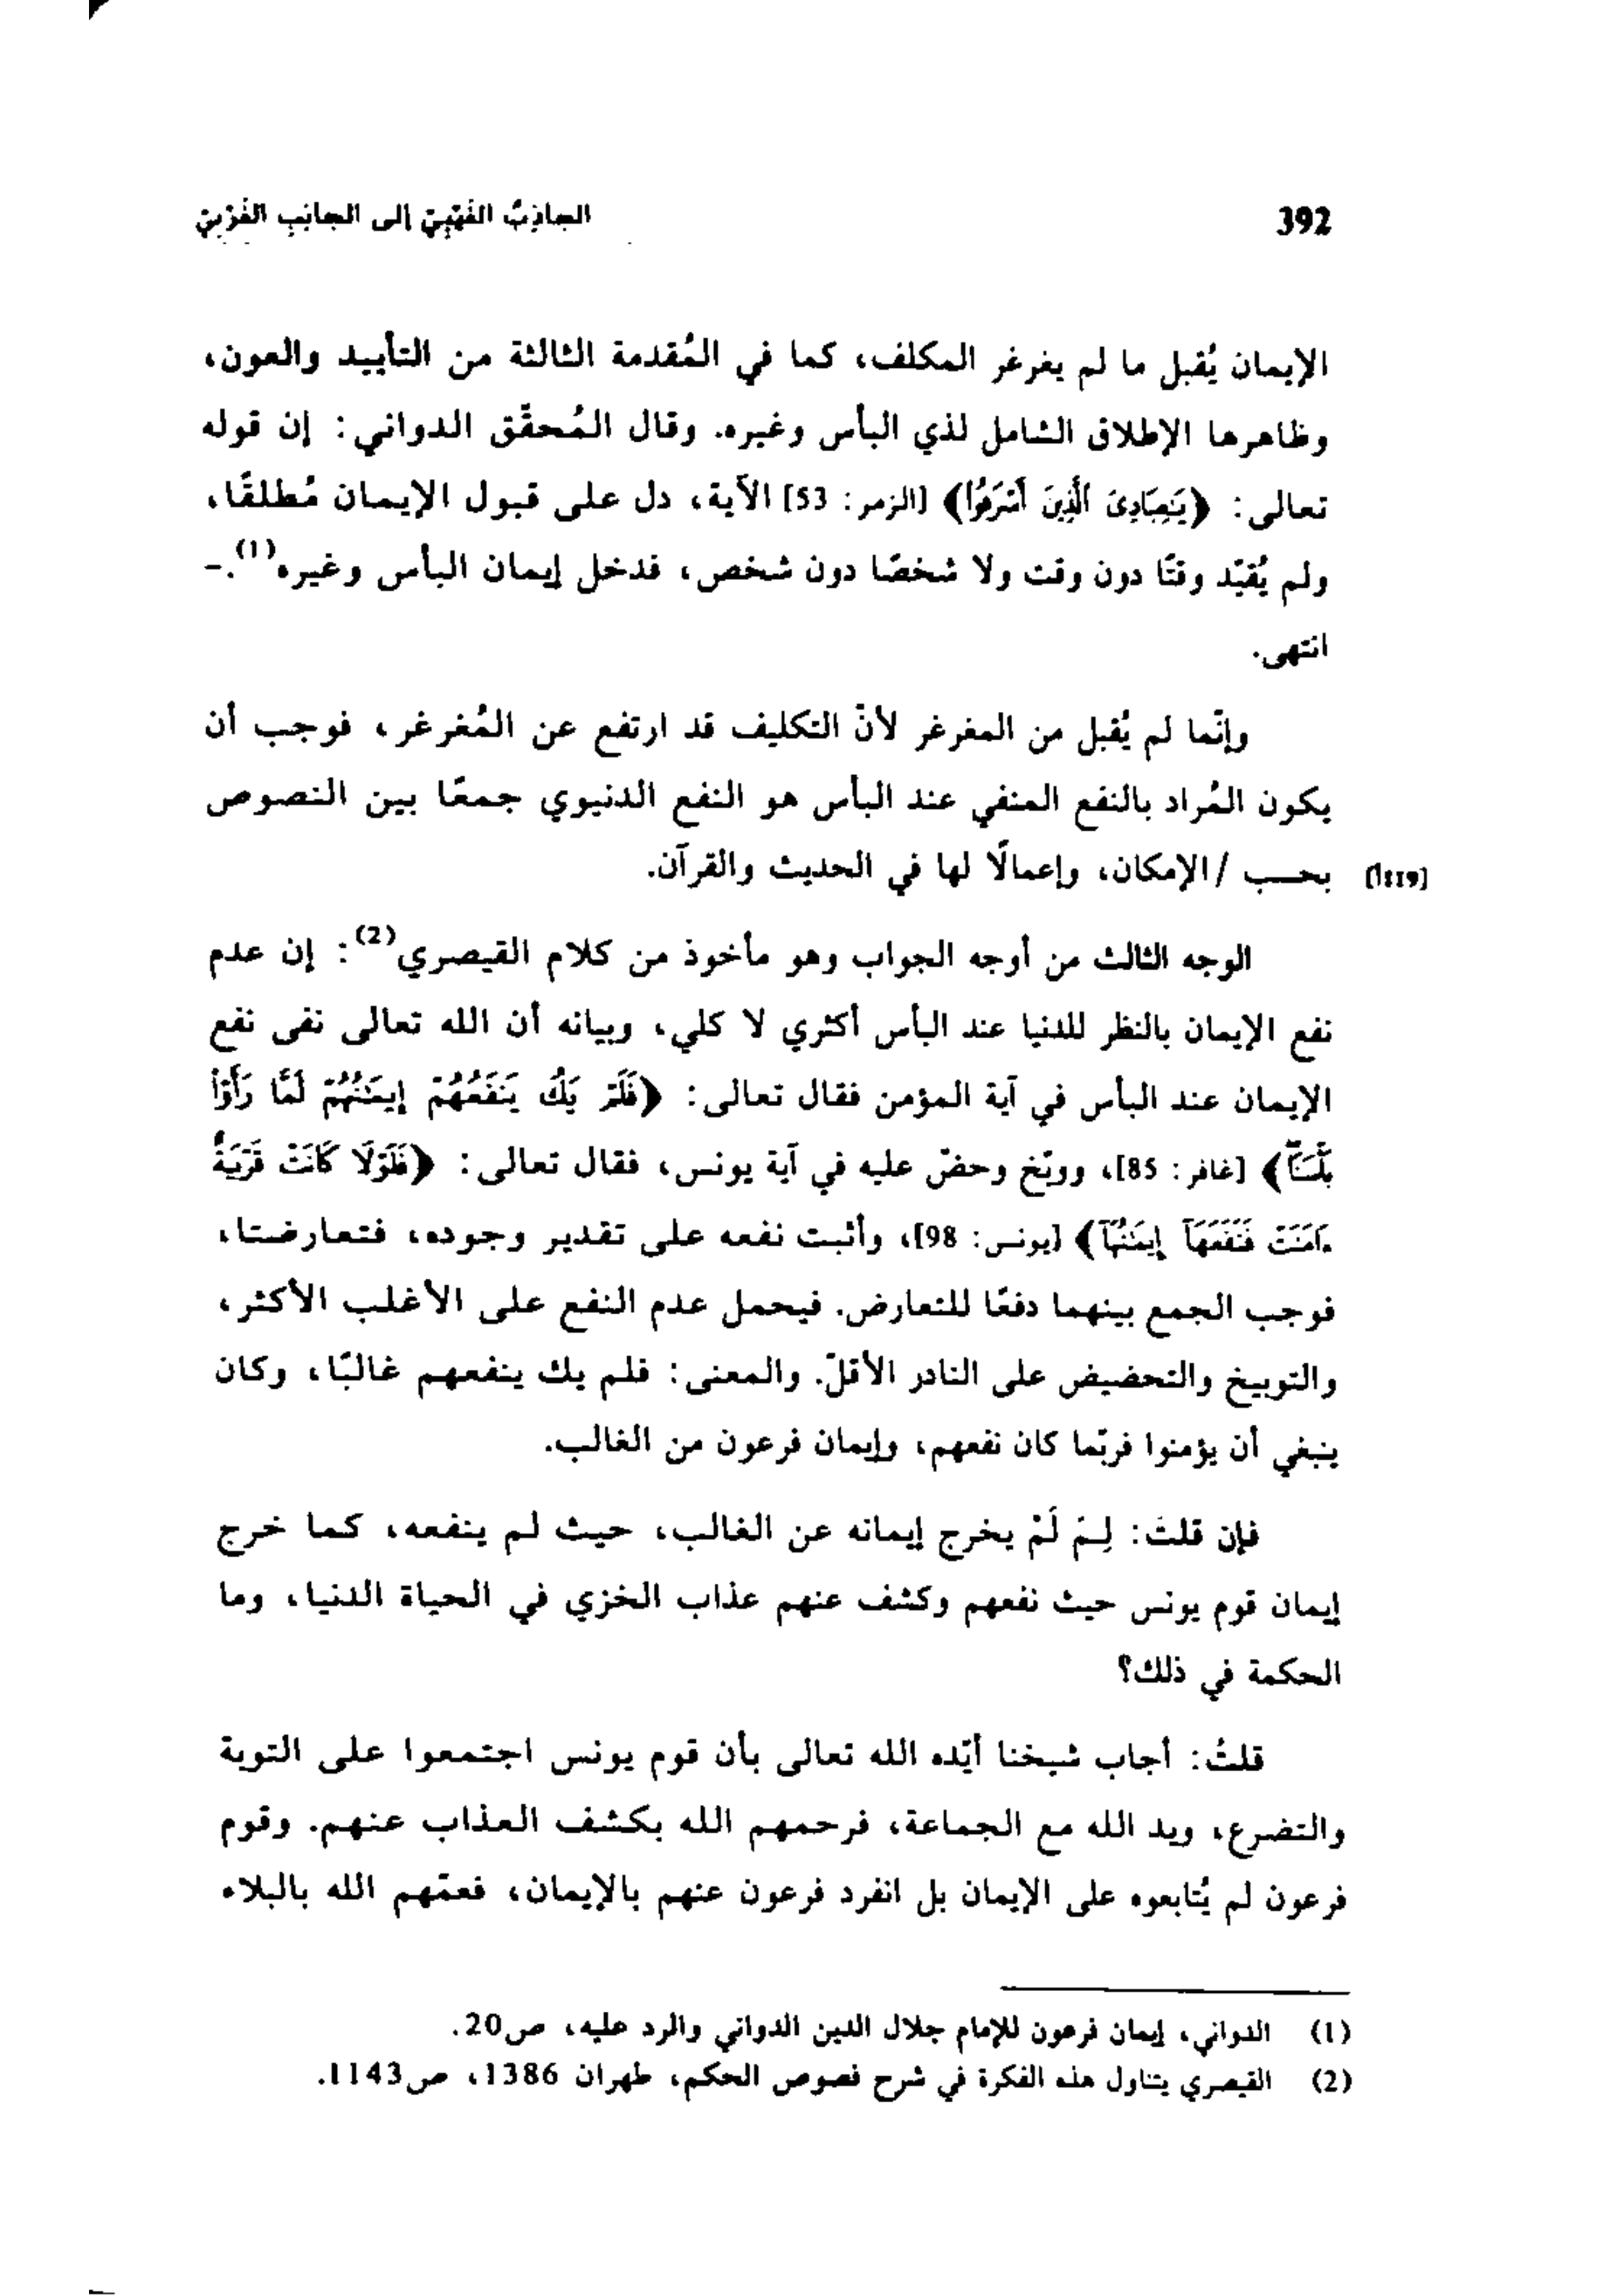 392
الجاذِبُ الغَيْبِيّ إلى الجانِبِ الغَرْبِيّ
الإيمان يُقبل ما لم يغرغر المكلف، كما في المُقدمة الثالثة من التأييد والعون،
وظاهرها الإطلاق الشامل لذي البأس وغيره. وقال المُحقّق الدواني: إن قوله
تعالى: ﴿يَٰعِبَادِىَ ٱلَّذِينَ أَسْرَفُوا۟﴾ [الزمر: 53] الآية، دل على قبول الإيمان مُطلقًا،
ولم يُقيّد وقتًا دون وقت ولا شخصًا دون شخص، فدخل إيمان البأس وغيره(1).-
انتهى.
وإنّما لم يُقبل من المغرغر لأنّ التكليف قد ارتفع عن المُغرغر، فوجب أن
يكون المُراد بالنفع المنفي عند البأس هو النفع الدنيوي جمعًا بين النصوص
[119أ] بحسب /الإمكان، وإعمالًا لها في الحديث والقرآن.
الوجه الثالث من أوجه الجواب وهو مأخوذ من كلام القيصري(2): إن عدم
نفع الإيمان بالنظر للدنيا عند البأس أكثري لا كلي، وبيانه أن الله تعالى نفى نفع
الإيمان عند البأس في آية المؤمن فقال تعالى: ﴿فَلَمْ يَكُ يَنفَعُهُمْ إِيمَٰنُهُمْ لَمَّا رَأَوْا۟
بَأْسَنَا﴾ [غافر: 85]، ووبّخ وحضّ عليه في آية يونس، فقال تعالى: ﴿فَلَوْلَا كَانَتْ قَرْيَةٌ
ءَامَنَتْ فَنَفَعَهَآ إِيمَٰنُهَآ﴾ [يونس: 98]، وأثبت نفعه على تقدير وجوده، فتعارضتا،
فوجب الجمع بينهما دفعًا للتعارض. فيحمل عدم النفع على الأغلب الأكثر،
والتوبيخ والتحضيض على النادر الأقلّ. والمعنى: فلم يك ينفعهم غالبًا، وكان
ينبغي أن يؤمنوا فربّما كان نفعهم، وإيمان فرعون من الغالب.
فإن قلتَ: لِمَ لَمْ يخرج إيمانه عن الغالب، حيث لم ينفعه، كما خرج
إيمان قوم يونس حيث نفعهم وكشف عنهم عذاب الخزي في الحياة الدنيا، وما
الحكمة في ذلك؟
قلتُ: أجاب شيخنا أيّده الله تعالى بأن قوم يونس اجتمعوا على التوبة
والتضرع، ويد الله مع الجماعة، فرحمهم الله بكشف العذاب عنهم. وقوم
فرعون لم يُتابعوه على الإيمان بل انفرد فرعون عنهم بالإيمان، فعمّهم الله بالبلاء
(1) الدواني، إيمان فرعون للإمام جلال الدين الدواني والرد عليه، ص20.
(2) القيصري يتناول هذه الفكرة في شرح فصوص الحكم، طهران 1386، ص1143.